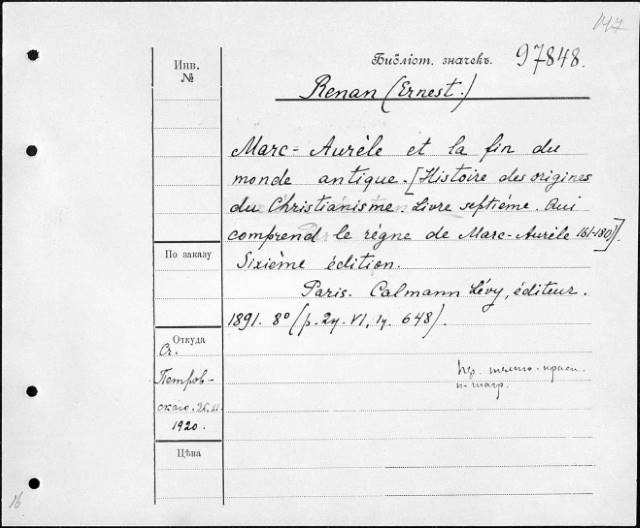 147
Инв. №
Библіот. значекъ. 97848.
Renan (Ernest.)
Marc=Aurèle et la fin du
monde antique. [Histoire des origines
du Christianisme. Livre septième. Qui
comprend le règne de Marc-Aurèle 161-180)].
Sixième édition.
Paris. Calmann Lévy, éditeur.
1891. 8º (p. 2y. VI, 1y. 648).
По заказу
Откуда
Петров-
скаго.
1920.
Цѣна
16